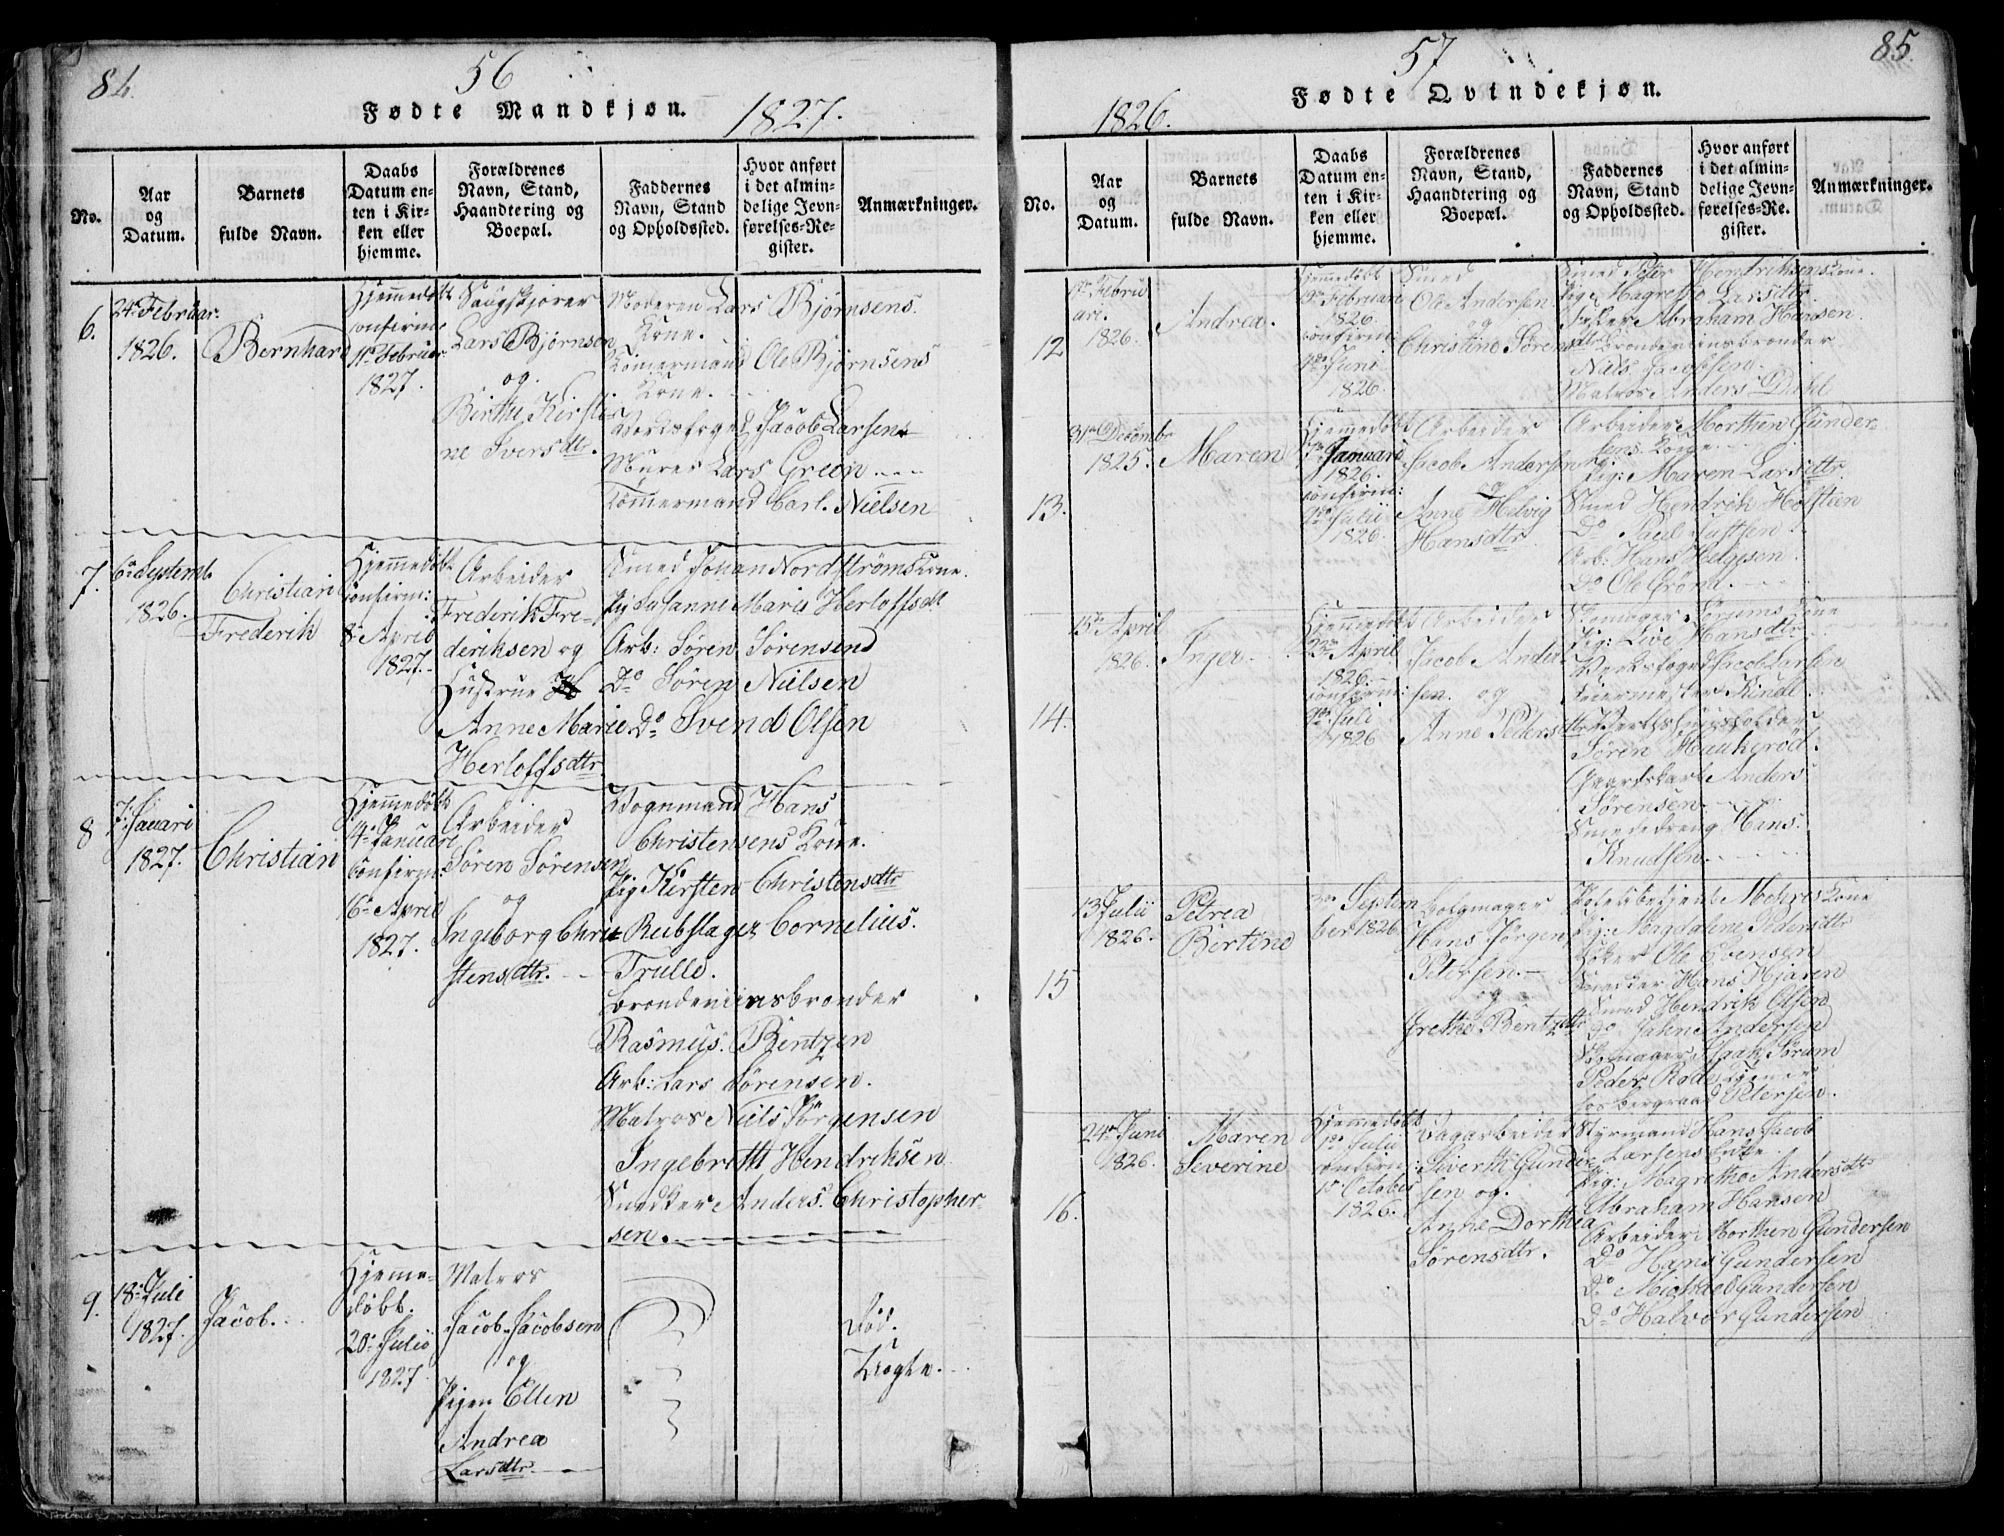 84.
56
Fødte Mandkjøn.
1827.
No.
Aar
og
Datum.
Barnets
fulde Navn.
Daabs
Datum en-
ten i Kir-
ken eller
hjemme.
Forældrenes
Navn, Stand,
Haandtering og
Boepæl.
Faddernes
Navn, Stand
og Opholdssted.
Hvor anført
i det almin-
delige Jevn-
førelses-Re-
gister.
Anmærkninger.
6.
24de Februar
1826.
Bernhard
Hjemmedøbt
confirme
11te Februar
1827.
Saugskjører
Lars Bjørnsen
og
Birthe Kirsti-
ne Iversdtr.
Moderen Lars Bjørnsens
Kone.
Tömermand Ole Bjørnsens
Kone.
Jacob Larsen
Murer Lars Green
Tömmermand Carl Nielsen
7.
6te Septemb.
1826.
Christian
Frederik
Hjemmedøbt
confirm:
8de April
1827.
Arbeider
Frederik Fre-
deriksen og
Hustrue
Anne Marie
Herloffsdtr.
Smed Johan Nordstrøms Kone.
Pig Susanne Marie Herloffsdtr
Arb: Søren Sörensen
Do Søren Nielsen
Do Svend Olsen
8
7de Januari
1827.
Christian
Hjemmedøbt
14de Januari
Confirm:
16de April
1827.
Arbeider
Søren Sørensen
og
Ingeborg Chri-
stensdtr.
Vognmand Hans
Christensens Kone.
Pig Kirsten Christensdtr
Reibslager Cornelius
Trulle.
Brøndeviinsbrænder
Rasmus Bentzen
Arb: Lars Sörensen.
Matros Niels Jörgensen
Ingebreth Hendriksen
Snedker Anders Christopher-
sen.
9.
18de Juli
1827.
Jacob.
Hjeme-
døbt.
20de Julii
1827
Matros
Jacob Jacobsen
og
Pigen Ellen
Andrea
Larsdtr
Død.
Uægte.
85.
57
Fødte Qvindekjøn.
1826.
No.
Aar
og
Datum.
Barnets
fulde Navn.
Daabs
Datum en-
ten i Kir-
ken eller
hjemme.
Forældrenes
Navn, Stand,
Haandtering og
Boepæl.
Faddernes
Navn, Stand
og Opholdssted.
Hvor anført
i det almin-
delige Jevn-
førelses-Re-
gister.
Anmærkninger.
12
Febru
ari.
1826.
Andrea.
Hjemmedøbt
Februari
1826.
confirm:
Juni
1826.
Smed
Ole Andersen
og
Christine Sørensdtr
Smed Peter Hendriksens Kone.
Pig Magrethe Larsdtr.
Abraham Hansen.
Niels Jacobsen.
Matros Anders Dahl
13.
31te Decembr
1825.
Maren
Hjemmedøbt
Januari
1826.
confirm:
Julii
1826.
Arbeider
Jacob Andersen
og
Anne Helvig
Hansdtr
Arbeider Morthen Gunder-
sens Kone
Pig: Maren Larsdtr
Smed Hendrik Holstien
Do Paul
Arb: Hans Helgesen
Do Ole Grönd.
14.
15de April
1826.
Inger.
Hjemmedøbt
23de April
1826.
confirm:
Juli
1826
Arbeider
Jacob Ander-
sen. og
Anne Pedersdtr
Skomager Sörjems Kone
Pig: Live Hansdtr
Jacob Larsen
Kindt.
Verthshuusholder
Søren Haukeröd.
Gaardskarl Anders
Sörensen
Smededreng Hans
Knudsen
15
13 Julii
1826.
Petrea
Bertine
3de Septem
ber 1826
Hans Jörgen
Petersen.
og
Grethe Bentzdtr
Politibetjent Mohrs Kone
Pig: Magdalene Pedersdtr
Ole Evensen
Snedker Hans Hjaren
Smed Hendrik Olsen
Do John Andersen
Skomager Isaak Sörum
Peder Rod,
Petersen.
16.
24de Juni
1826.
Maren
Severine
Hjemmedøbt
Julii
confirm:
October
1826.
Dagarbeider
Siverth Gunder-
sen og.
Anne Dorthea
Sørensdtr.
Styrmand Hans Jacob
Larsens Enke.
Pig: Magrethe Andersdtr
Abraham Hansen
Arbeider Morthen Gundersen
Do Hans Gundersen
Do Michael Gundersen
Do Halvor Gundersen